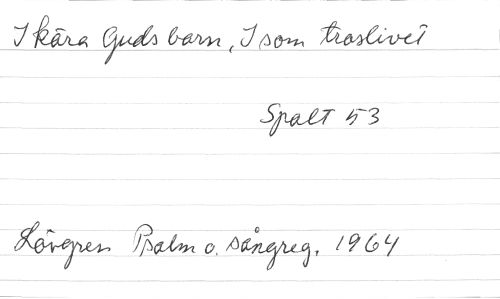 I kära Guds barn, I som troslivet
Spalt 53
Lövgren Psalm o. sångreg. 1964